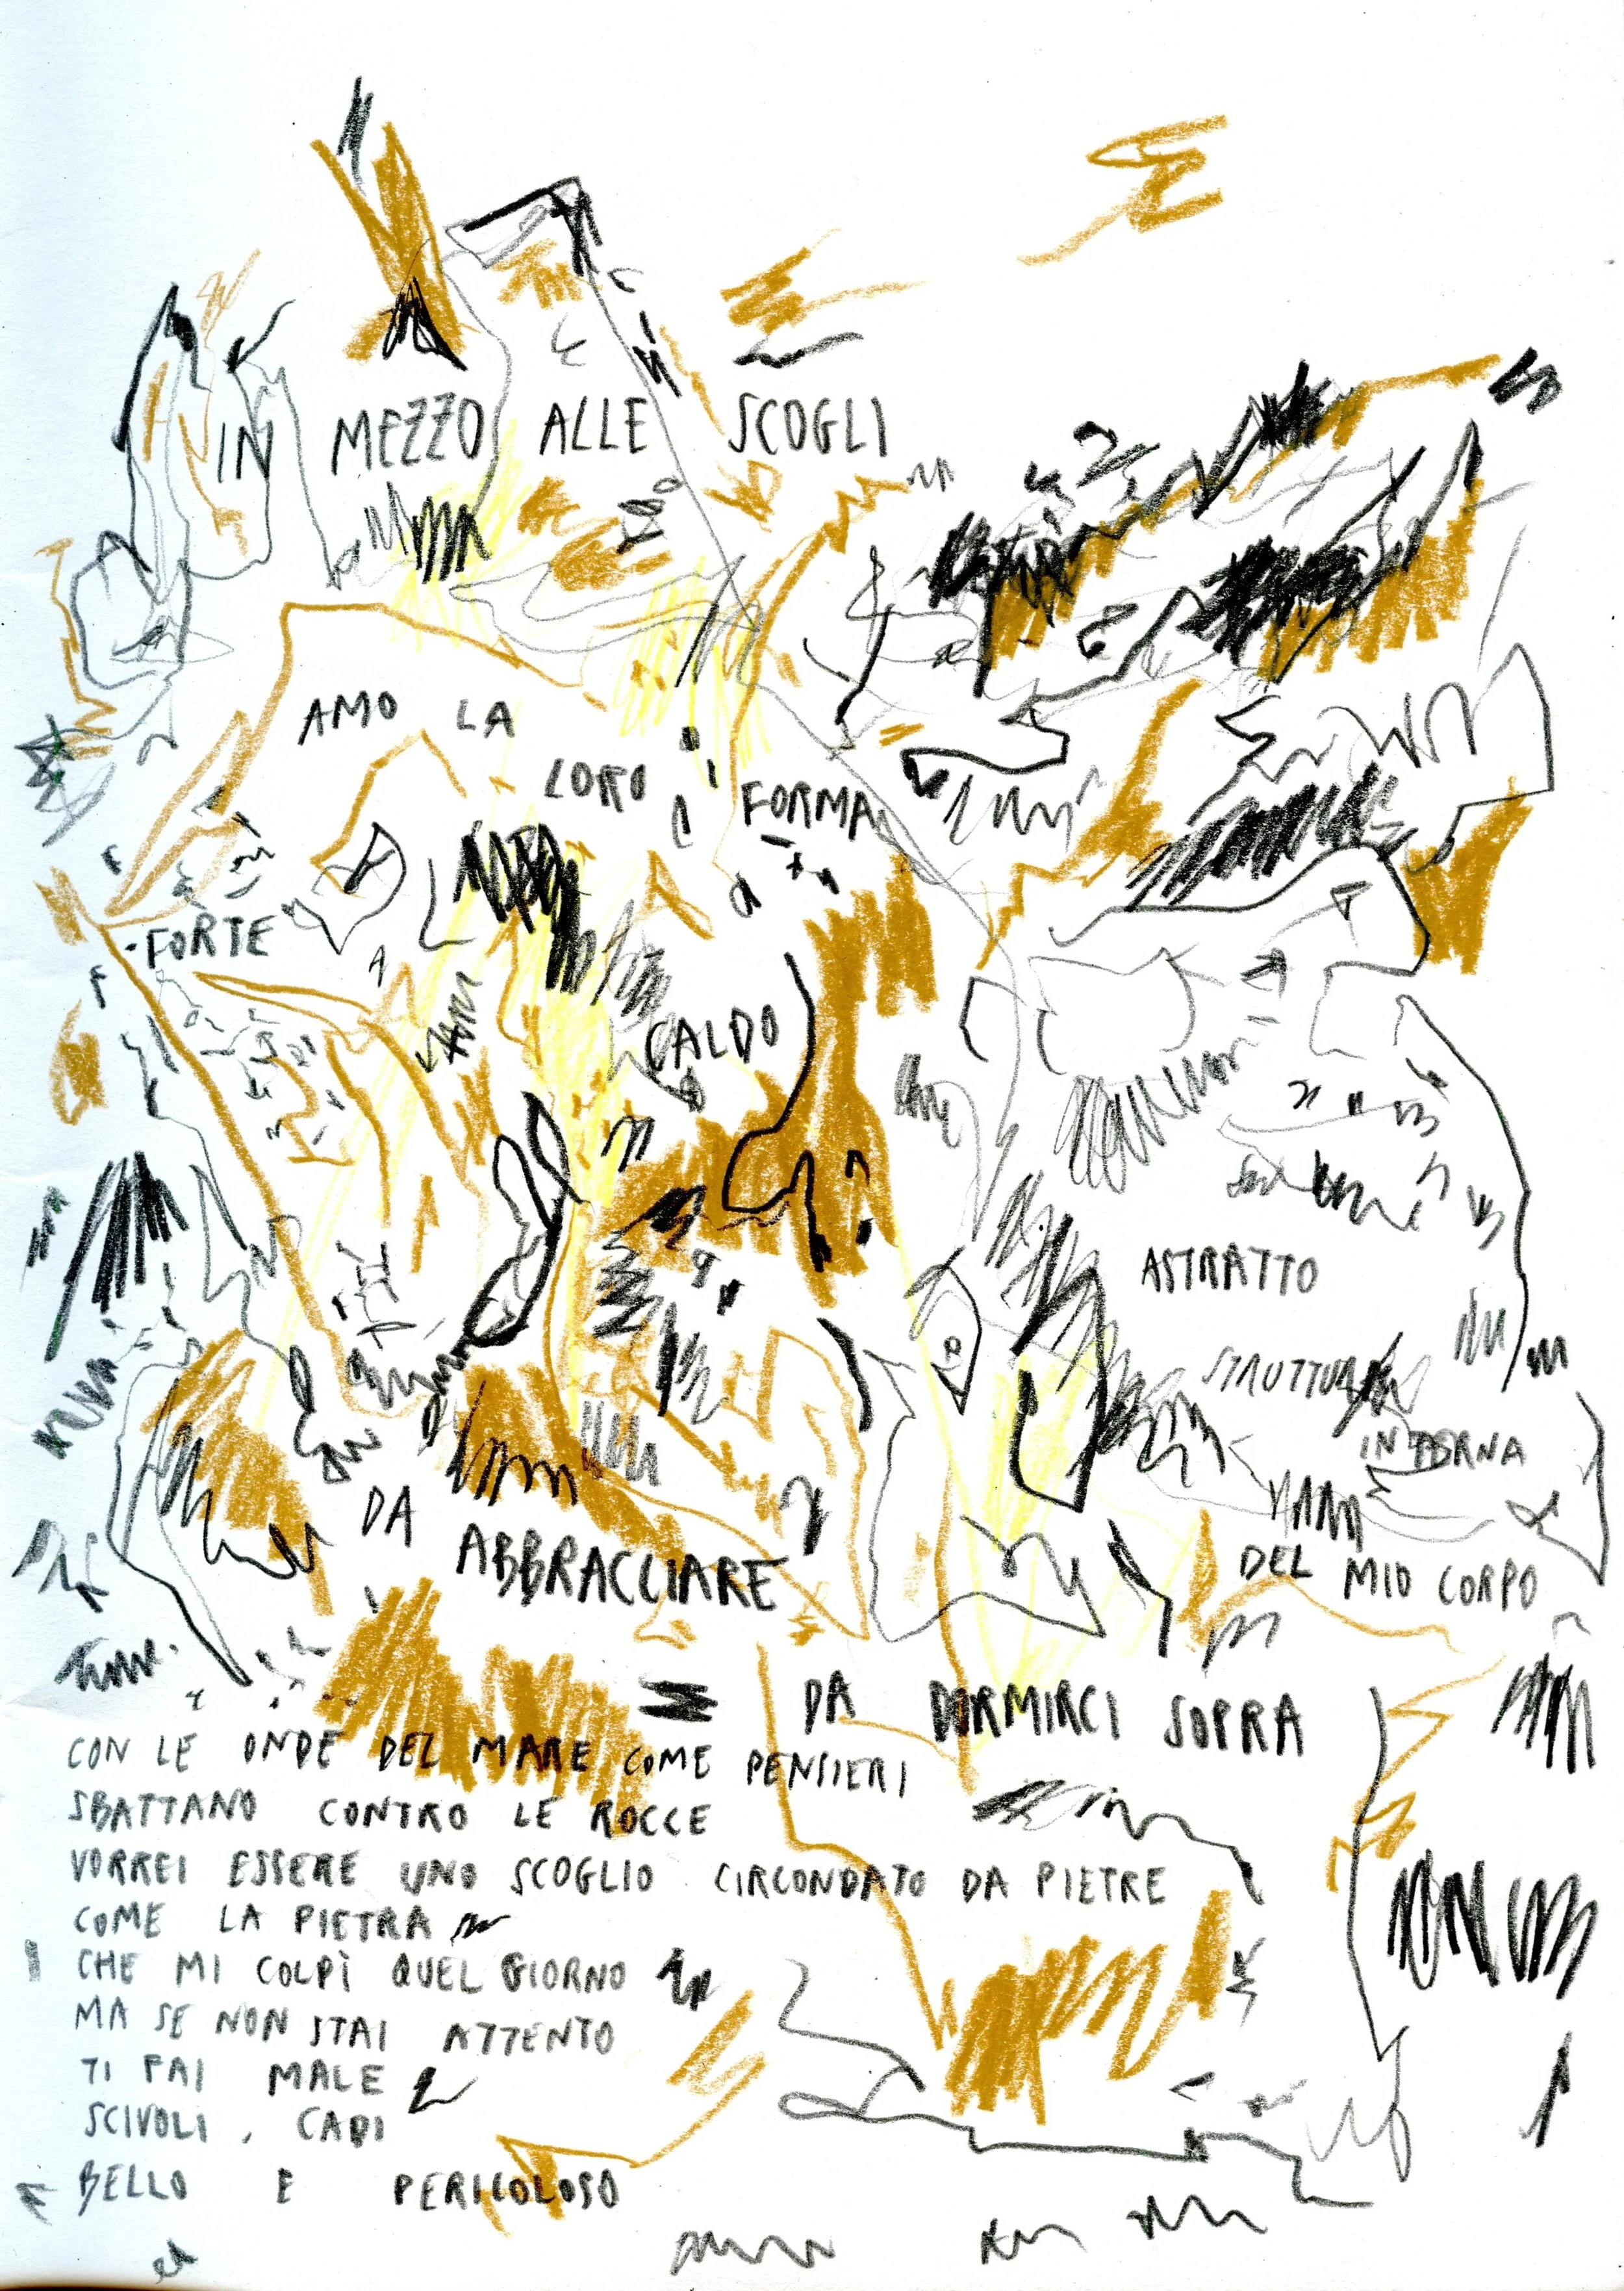 IN MEZZO ALLE SCOGLI
AMO LA
LORO FORMA
FORTE
CALDO
ASTRATTO
STRUTTURA
INTERNA
DEL MIO CORPO
DA ABBRACCIARE
DA DORMIRCI SOPRA
CON LE ONDE DEL MARE COME PENSIERI
SBATTANO CONTRO LE ROCCE
VORREI ESSERE UNO SCOGLIO CIRCONDATO DA PIETRE
COME LA PIETRA
CHE MI COLPÌ QUEL GIORNO
MA SE NON STAI ATTENTO
TI FAI MALE
SCIVOLI, CADI
BELLO E PERICOLOSO